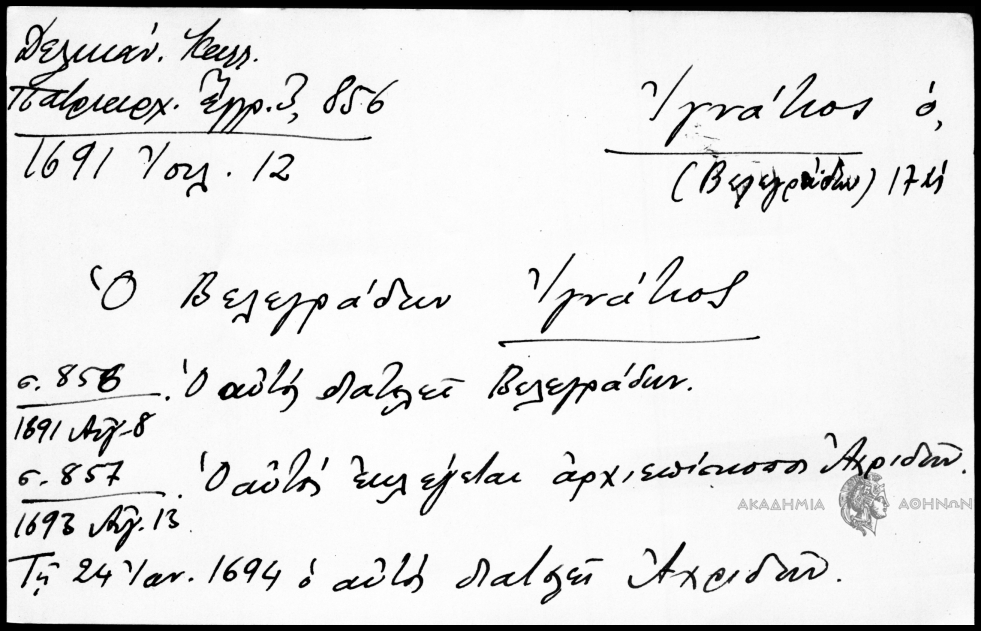 Δελικάν. Καλλ.
Πατριαρχ. Ἔγγρ. 3, 856
1691 Ἰουλ. 12
Ἰγνάτιος ὁ,
(Βελεγράδων) 17 αἰ
Ὁ Βελεγράδων Ἰγνάτιος
σ. 856. Ὁ αὐτός διατελεῖ Βελεγράδων.
1691 Αὐγ. 8
σ. 857. Ὁ αὐτός ἐκλέγεται ἀρχιεπίσκοπος Ἀχριδῶν.
1693 Αὐγ. 13
ΑΚΑΔΗΜΙΑ ΑΘΗΝΩΝ
Τῇ 24 Ἰαν. 1694 ὁ αὐτός διατελεῖ Ἀχριδῶν.